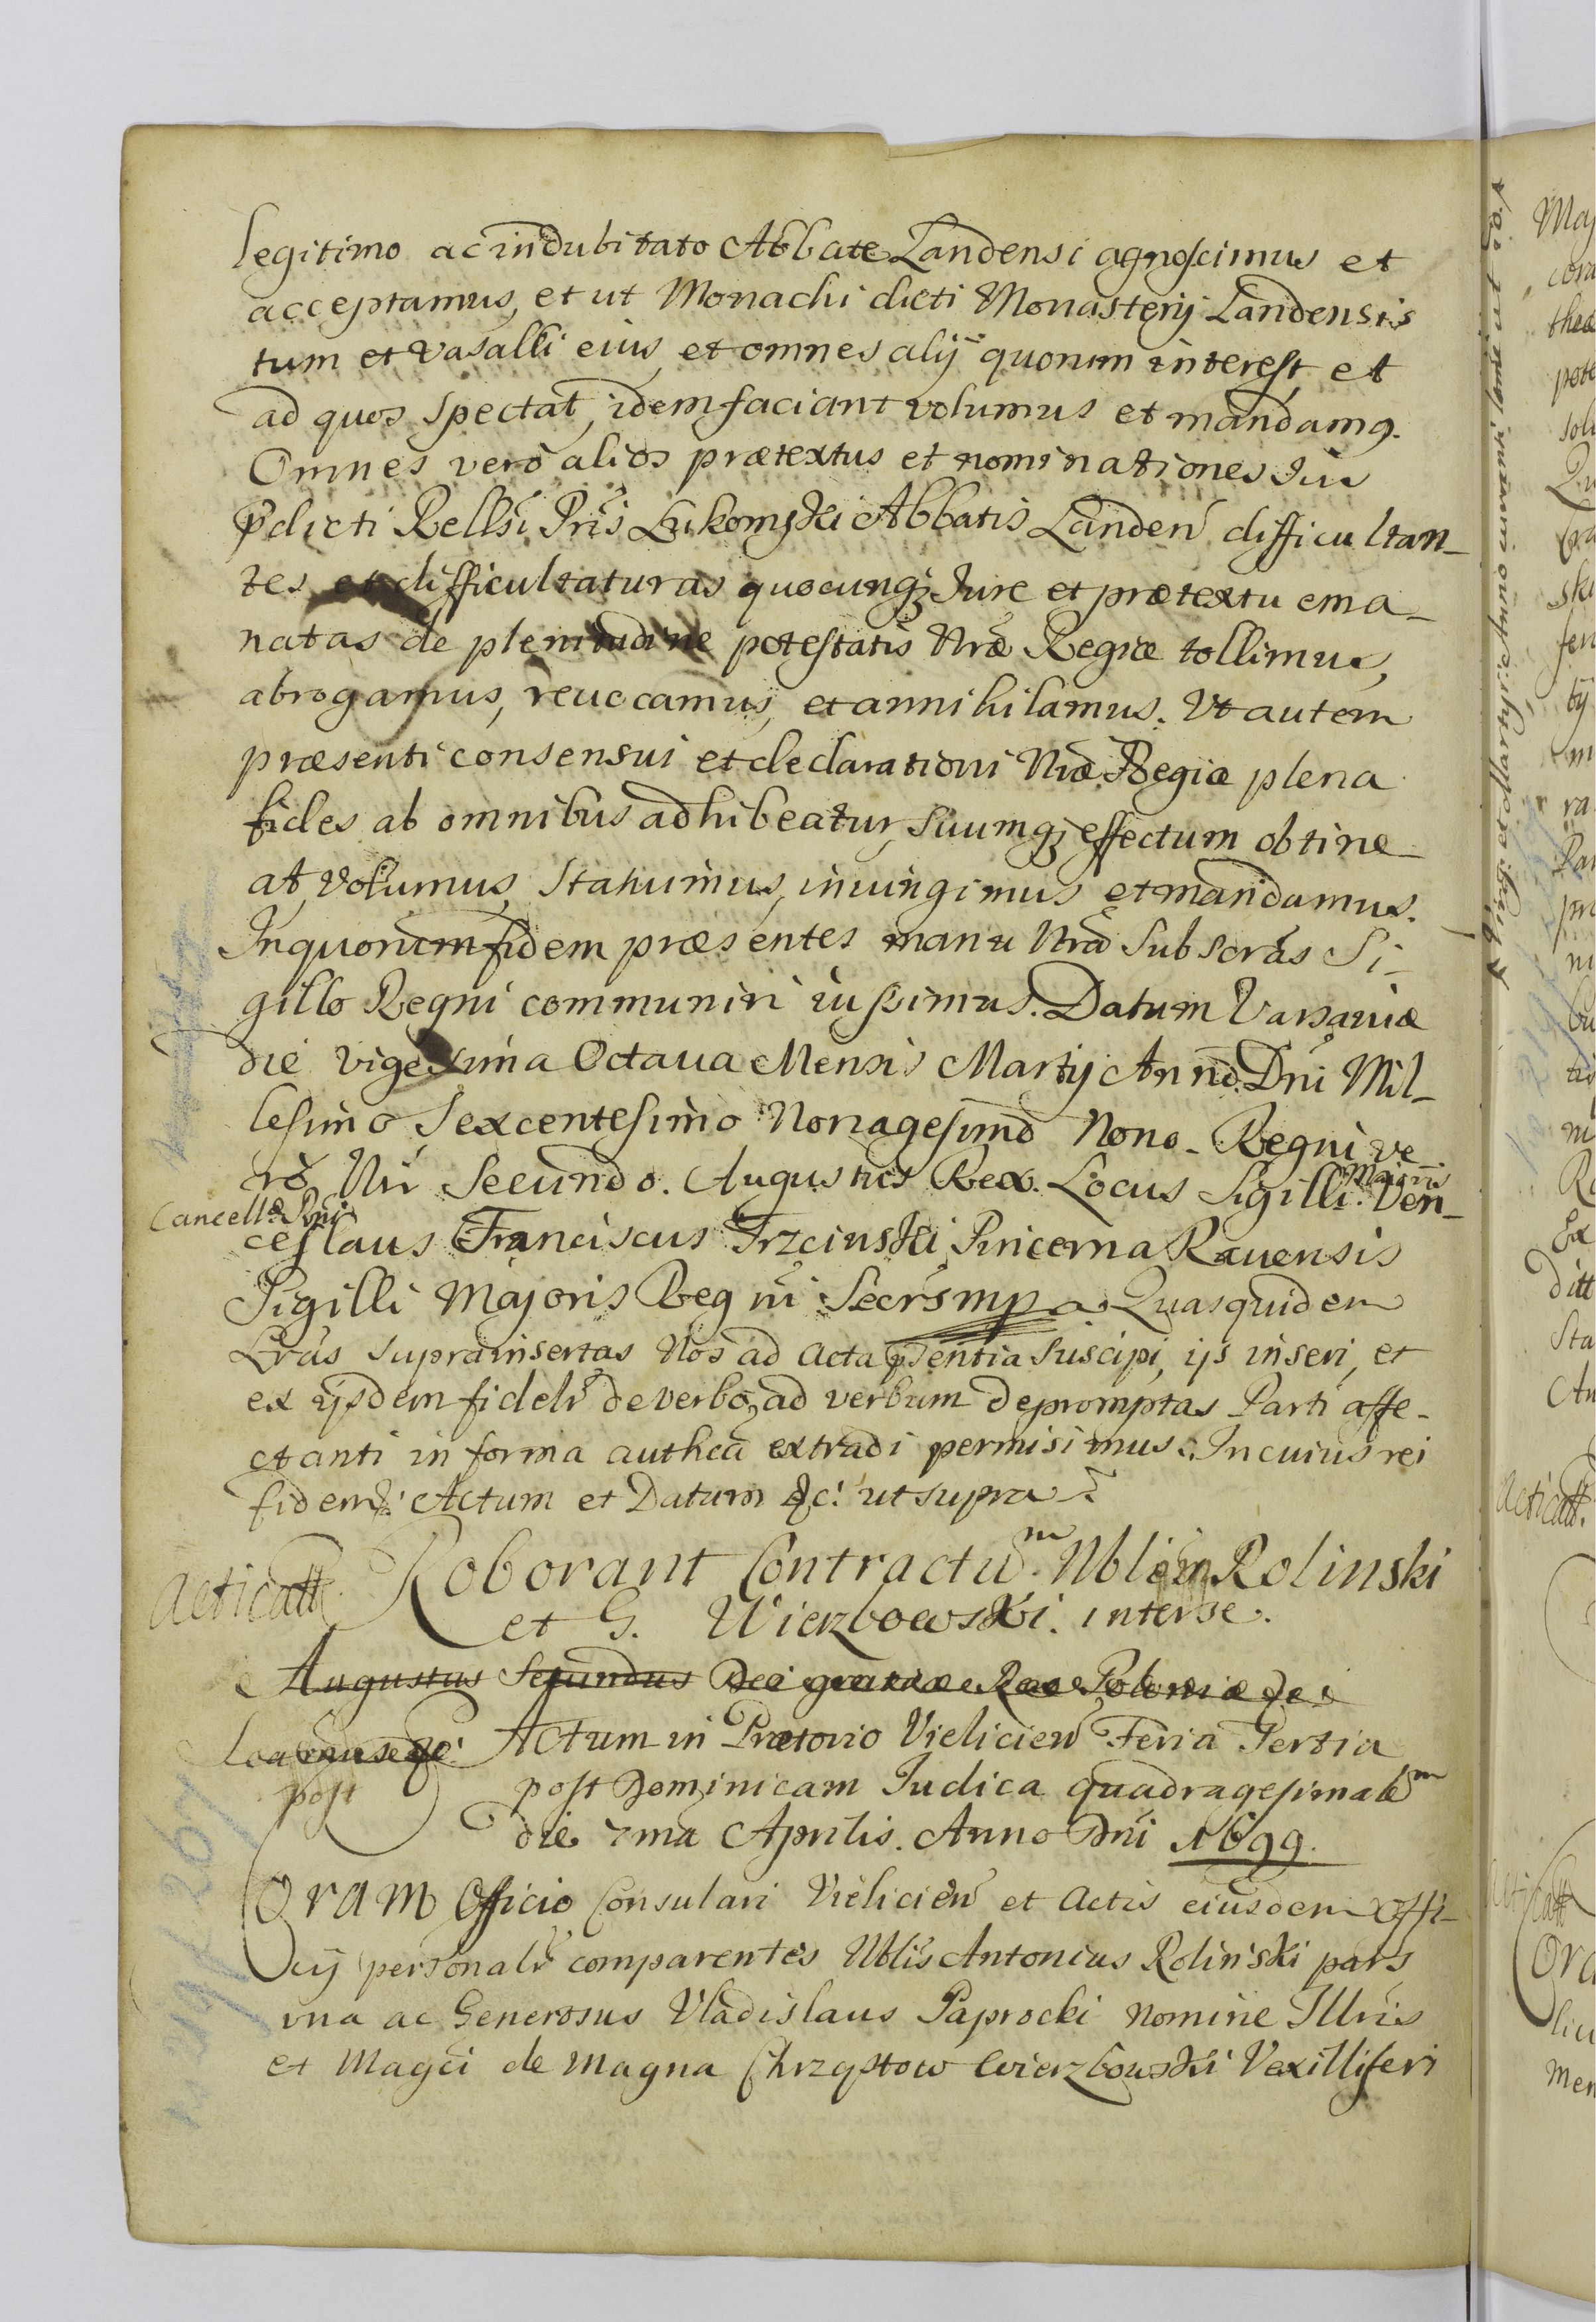 legitimo ac indubitato Abbate Landensi agnoscimus et
acceptamus, et ut Monachi dicti Monasterij Landensis
tum et Vasalli eius, et omnes alij quorum interest, et
ad quos Spectat, idem faciant volumus et mandamq.
Omnes vero alios prætextus et nominationes Jus
pdicti Rellsi Pris Lukomski Abbatis Landen difficultan-
tes et difficultaturas quocunqz Jure et prætextu ema-
natas de plenitudine potestatis Nræ Regiæ tollimus,
abrogamus, reuocamus, et annihilamus. Vt autem
præsenti consensui et declarationi Nræ Regiæ plena
fides ab omnibus adhibeatur, Suumqz effectum obtine
at, volumus, Statuimus, iniungimus et mandamus.
In quorum fidem præsentes manu Nra Subscras Si-
gillo Regni communiri iussimus. Datum Varsaviæ
die vigesima Octaua Mensis Martij Anno Dni Mil-
lesimo Sexcentesimo Nonagesimo Nono. Regni ve
ro Nri Secundo. Augustus Rex. Locus Sigilli Majoris Ven-
Cancellæ Rni
ceslaus Franciscus Trzcinski Pincerna Rauensis
Sigilli Majoris Regni Secrs mp Quasquidem
Lras suprainsertas Nos ad Acta pSentia Suscipi, ijs inseri, et
ex ijsdem fidelr de verbo ad verbum depromptas Parti affe-
ctanti in forma authca extradi permisimus. In cuius rei
fidem. Actum et Datum &c. ut supra
Acticatt Roborant Contractum Nblem Rolinski
et G. Wierzbowski. inter se.
Augustus Secundus Dei gratia Rex Poloniæ
Actum in Prætorio Vielicien Feria Tertia
post
post Dominicam Judica quadragesimalem
die 7ma Aprilis. Anno Dni 1699.
Coram Officio Consulari Vielicien et Actis eiusdem Offi-
cij personalr comparentes Nblis Antonius Rolinski pars
vna ac Generosus Vladislaus Paprocki nomine Illris
et Magci de Magna Chrząstow Wierzbowski Vexilliferi